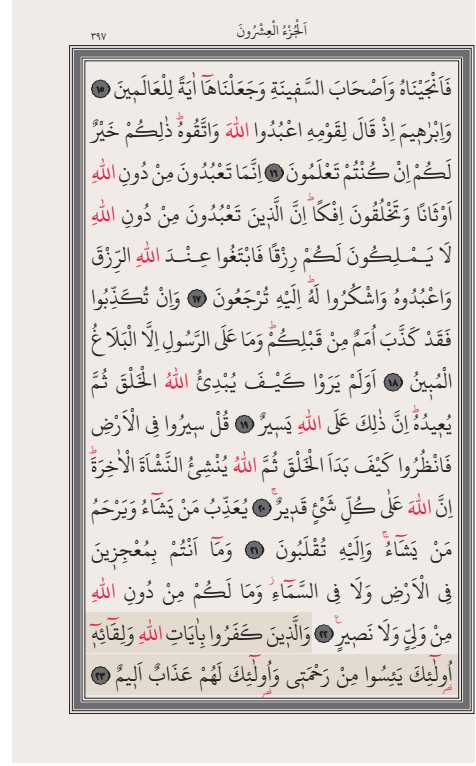 اَلْجُزْءُ الْعِشْرُونَ ٣٩٧
فَاَنْجَيْنَاهُ وَاَصْحَابَ السَّفٖينَةِ وَجَعَلْنَاهَٓا اٰيَةً لِلْعَالَمٖينَ ١٥
وَاِبْرٰهٖيمَ اِذْ قَالَ لِقَوْمِهِ اعْبُدُوا اللّٰهَ وَاتَّقُوهُؕ ذٰلِكُمْ خَيْرٌ
لَكُمْ اِنْ كُنْتُمْ تَعْلَمُونَ ١٦ اِنَّمَا تَعْبُدُونَ مِنْ دُونِ اللّٰهِ
اَوْثَانًا وَتَخْلُقُونَ اِفْكًاؕ اِنَّ الَّذٖينَ تَعْبُدُونَ مِنْ دُونِ اللّٰهِ
لَا يَمْلِكُونَ لَكُمْ رِزْقًا فَابْتَغُوا عِنْدَ اللّٰهِ الرِّزْقَ
وَاعْبُدُوهُ وَاشْكُرُوا لَهُؕ اِلَيْهِ تُرْجَعُونَ ١٧ وَاِنْ تُكَذِّبُوا
فَقَدْ كَذَّبَ اُمَمٌ مِنْ قَبْلِكُمْؕ وَمَا عَلَى الرَّسُولِ اِلَّا الْبَلَاغُ
الْمُبٖينُ ١٨ اَوَلَمْ يَرَوْا كَيْفَ يُبْدِئُ اللّٰهُ الْخَلْقَ ثُمَّ
يُعٖيدُهُؕ اِنَّ ذٰلِكَ عَلَى اللّٰهِ يَسٖيرٌ ١٩ قُلْ سٖيرُوا فِى الْاَرْضِ
فَانْظُرُوا كَيْفَ بَدَاَ الْخَلْقَ ثُمَّ اللّٰهُ يُنْشِئُ النَّشْاَةَ الْاٰخِرَةَؕ
اِنَّ اللّٰهَ عَلٰى كُلِّ شَىْءٍ قَدٖيرٌۚ ٢٠ يُعَذِّبُ مَنْ يَشَٓاءُ وَيَرْحَمُ
مَنْ يَشَٓاءُۚ وَاِلَيْهِ تُقْلَبُونَ ٢١ وَمَٓا اَنْتُمْ بِمُعْجِزٖينَ
فِى الْاَرْضِ وَلَا فِى السَّمَٓاءِؗ وَمَا لَكُمْ مِنْ دُونِ اللّٰهِ
مِنْ وَلِىٍّ وَلَا نَصٖيرٍࣖ ٢٢ وَالَّذٖينَ كَفَرُوا بِاٰيَاتِ اللّٰهِ وَلِقَٓائِهٖٓ
اُو۬لٰٓئِكَ يَئِسُوا مِنْ رَحْمَتٖى وَاُو۬لٰٓئِكَ لَهُمْ عَذَابٌ اَلٖيمٌ ٢٣